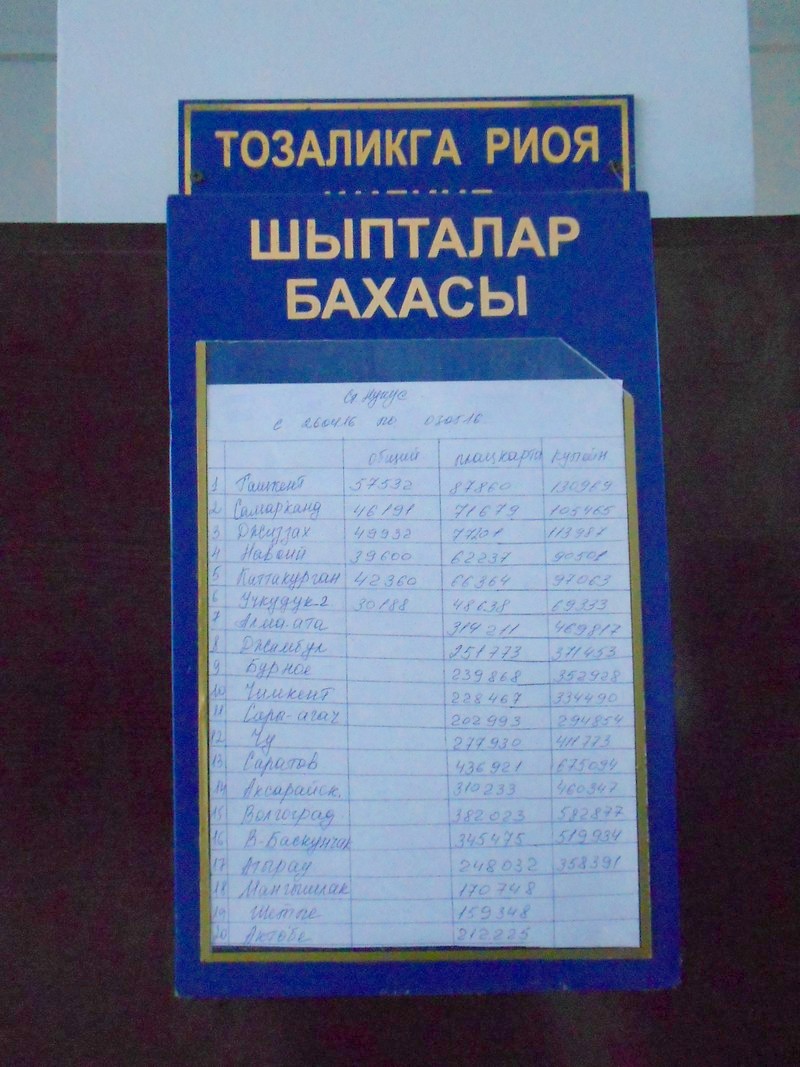 ТОЗАЛИКГА РИОЯ
ШЫПТАЛАР
БАХАСЫ
Ст. Нукус
с 260416 по 030516
общий плацкарта купейн
1 Ташкент 57532 87860 130969
2 Самарканд 46191 71679 105465
3 Джиззах 49932 77201 113987
4 Навоий 39600 62237 90501
5 Каттакурган 42360 66364 97063
6 Учкудук-2 30188 48638 69333
7 Алма-ата 314211 469817
8 Джамбул 251773 371453
9 Бурное 239868 352928
10 Чимкент 228467 334490
11 Сары-агач 202993 294854
12 Чу 277930 411773
13 Саратов 436921 675094
14 Аксарайск. 310233 460347
15 Волгоград 382023 582877
16 В-Баскунчак 345475 519934
17 Атырау 248032 358391
18 Мангышлак 170748
19 Шетпе 159348
20 Актобе 212225